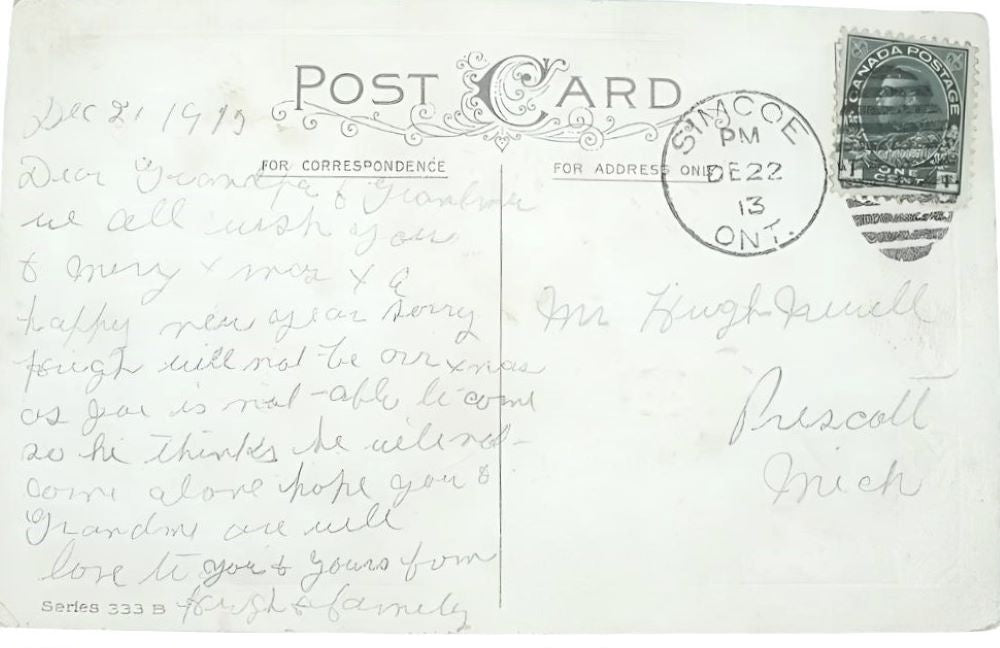 POST CARD
CANADA POSTAGE
ONE CENT
SIMCOE
PM
DE 22
13
ONT.
FOR CORRESPONDENCE
FOR ADDRESS ONLY
Dec 21 1913
Dear Grandpa & Grandma
we all wish you
& Merry xmas & a
happy new year sorry
Hugh will not be our xmas
as Joe is not able to come
so he thinks he will not
come alone hope you &
Grandma are well
love to you & yours from
Hugh & family
Mr Hugh
Prescott
Mich
Series 333 B